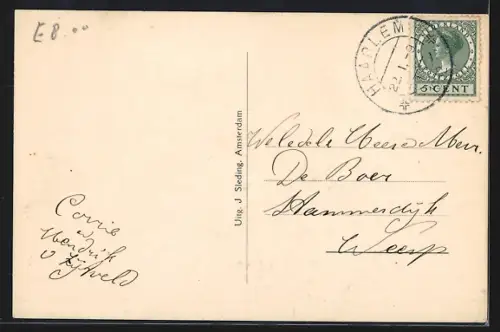 E 8.00
HAARLEM
22.1
5 CENT
Uitg. J Sleding. Amsterdam
Weledele Heer en Mevr.
De Boer
Hammerdijk
Weesp
Corrie
Hendrik
v Zijtveld